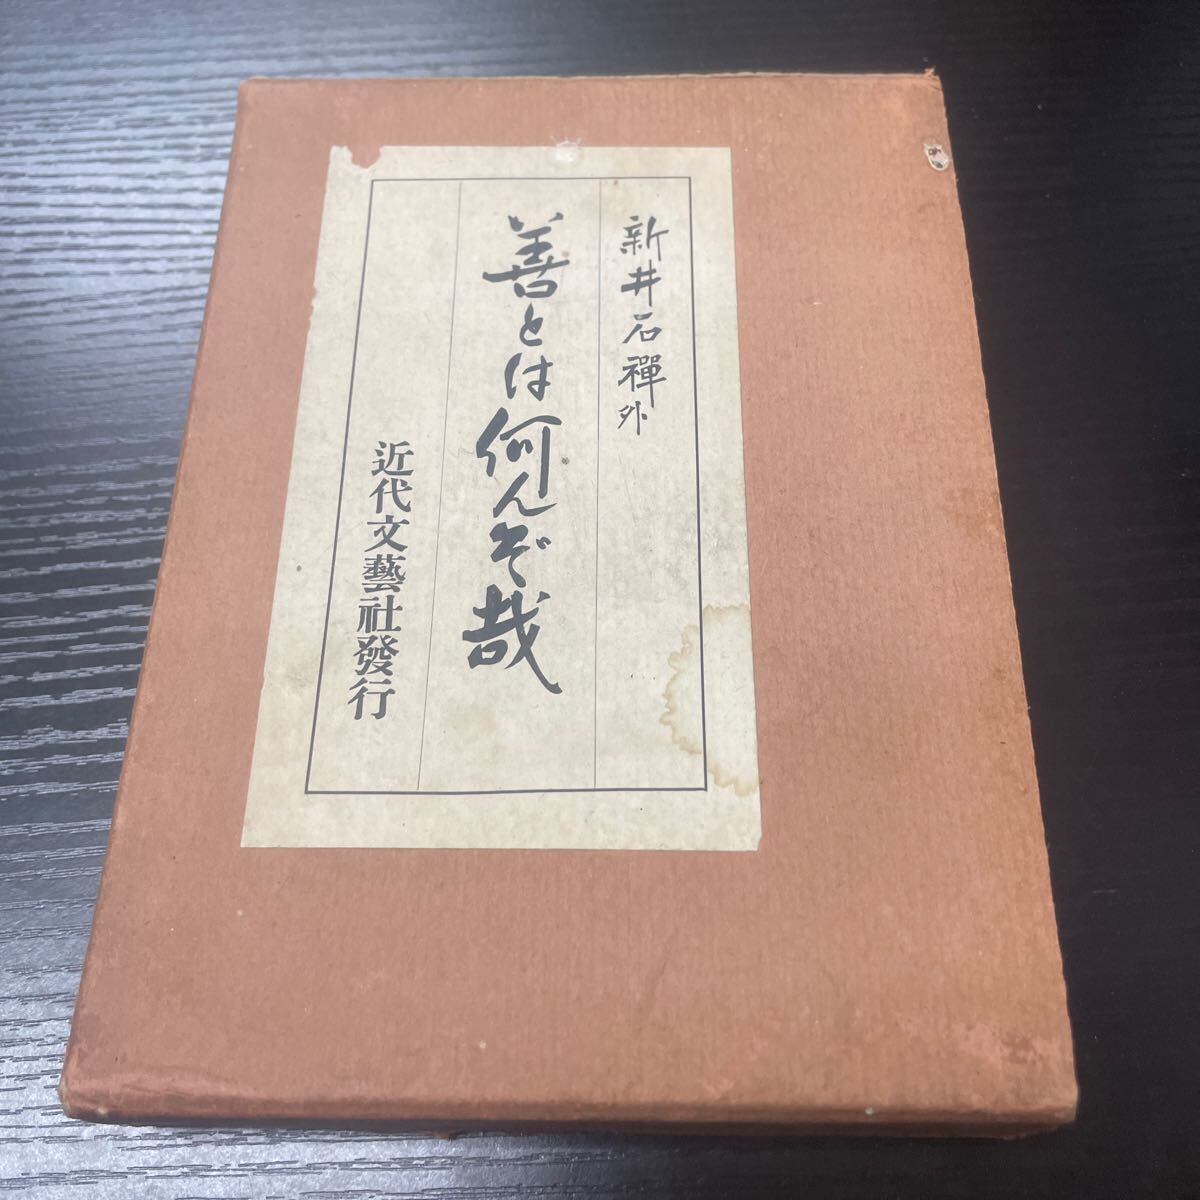 新井石禪外
善とは何んぞ哉
近代文藝社發行